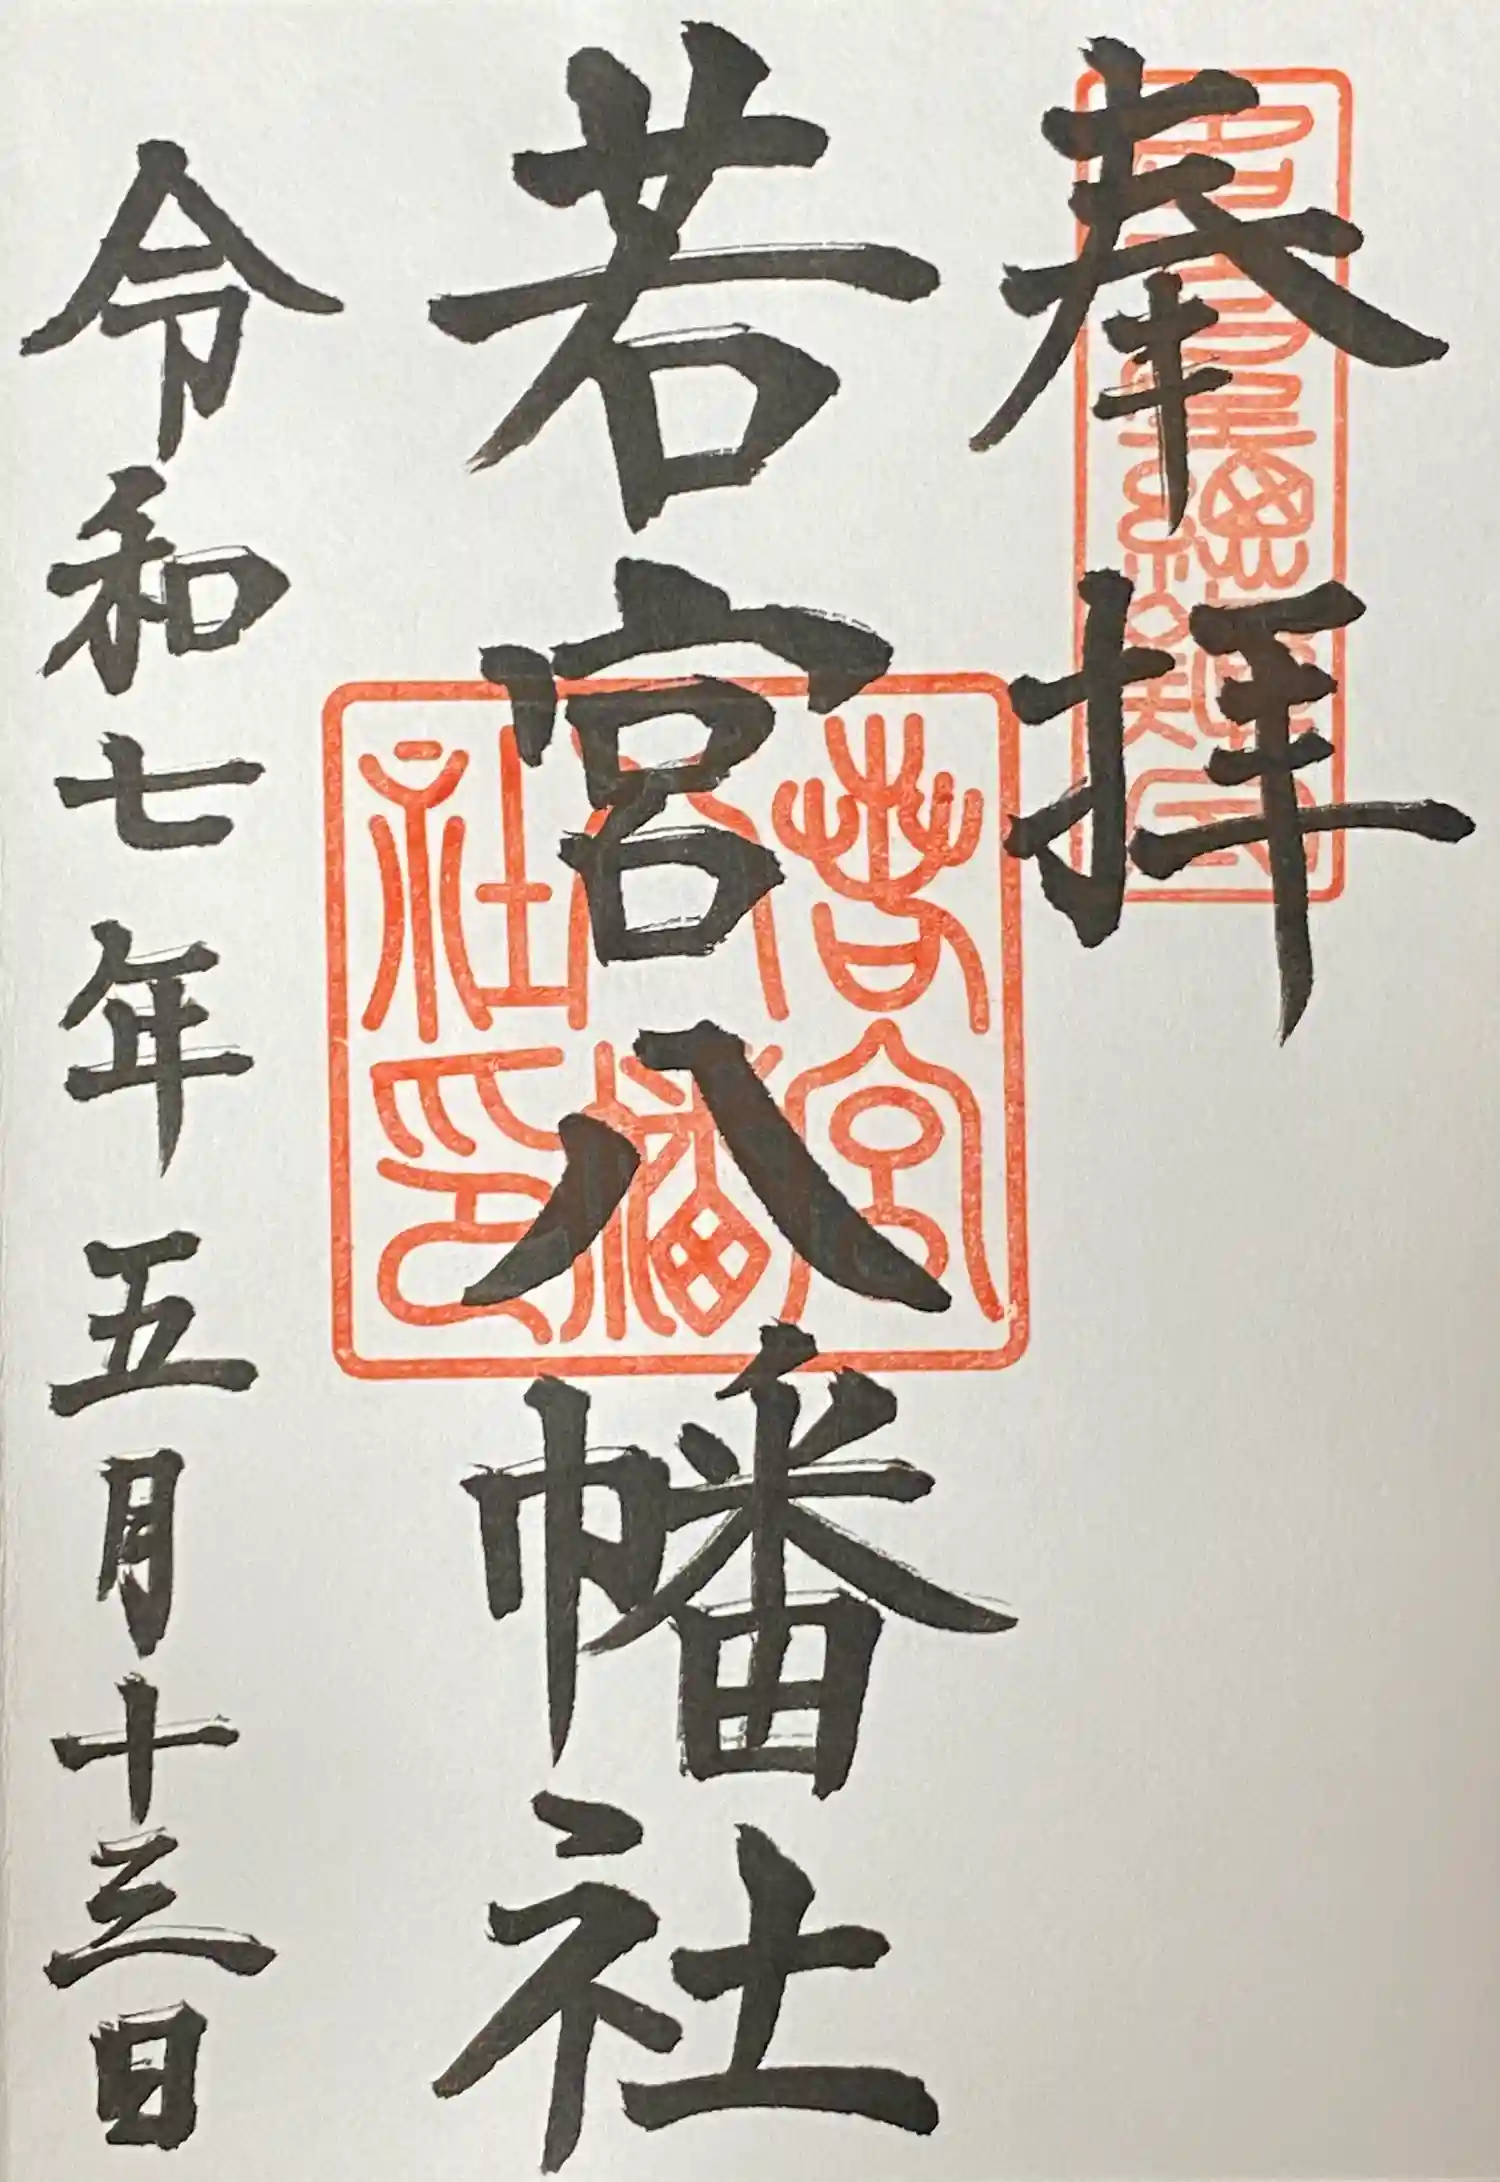 奉拝
若宮八幡社
若宮八幡社印
令和七年五月十三日